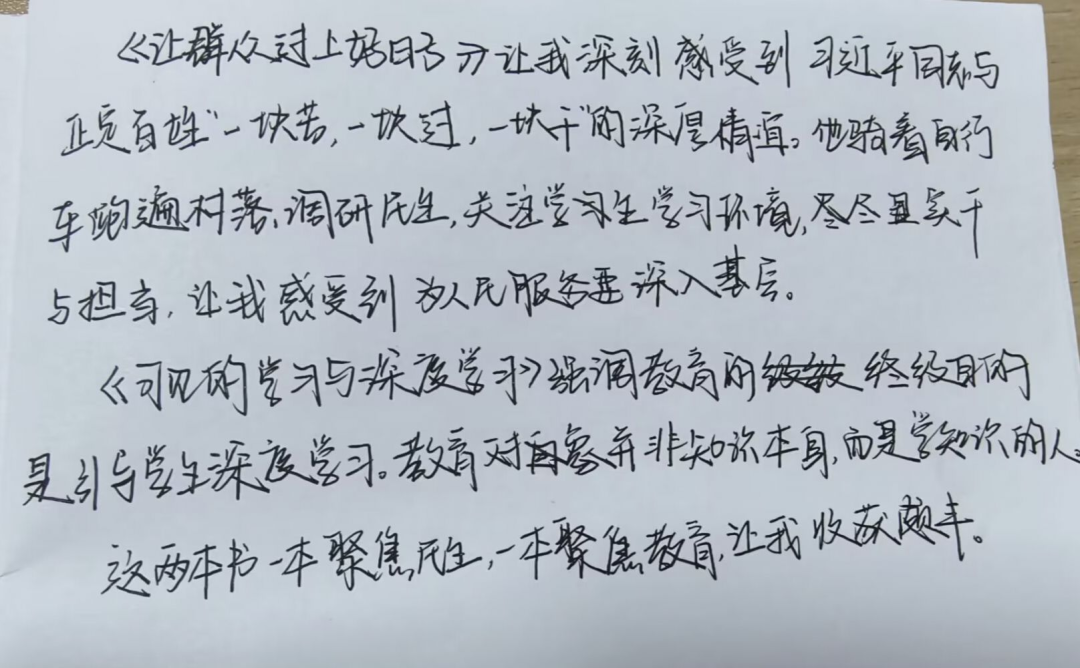 《让群众过上好日子》让我深刻感受到习近平同志与
正定百姓“一块苦，一块过，一块干”的深厚情谊。他骑着自行
车跑遍村落、调研民生，关注学习生学习环境，尽尽显实干
与担当，让我感受到为人民服务要深入基层。
《可见的学习与深度学习》强调教育的终级目的
是引导学生深度学习。教育对象并非知识本身，而是学知识的人。
这两本书一本聚焦民生，一本聚焦教育，让我收获颇丰。